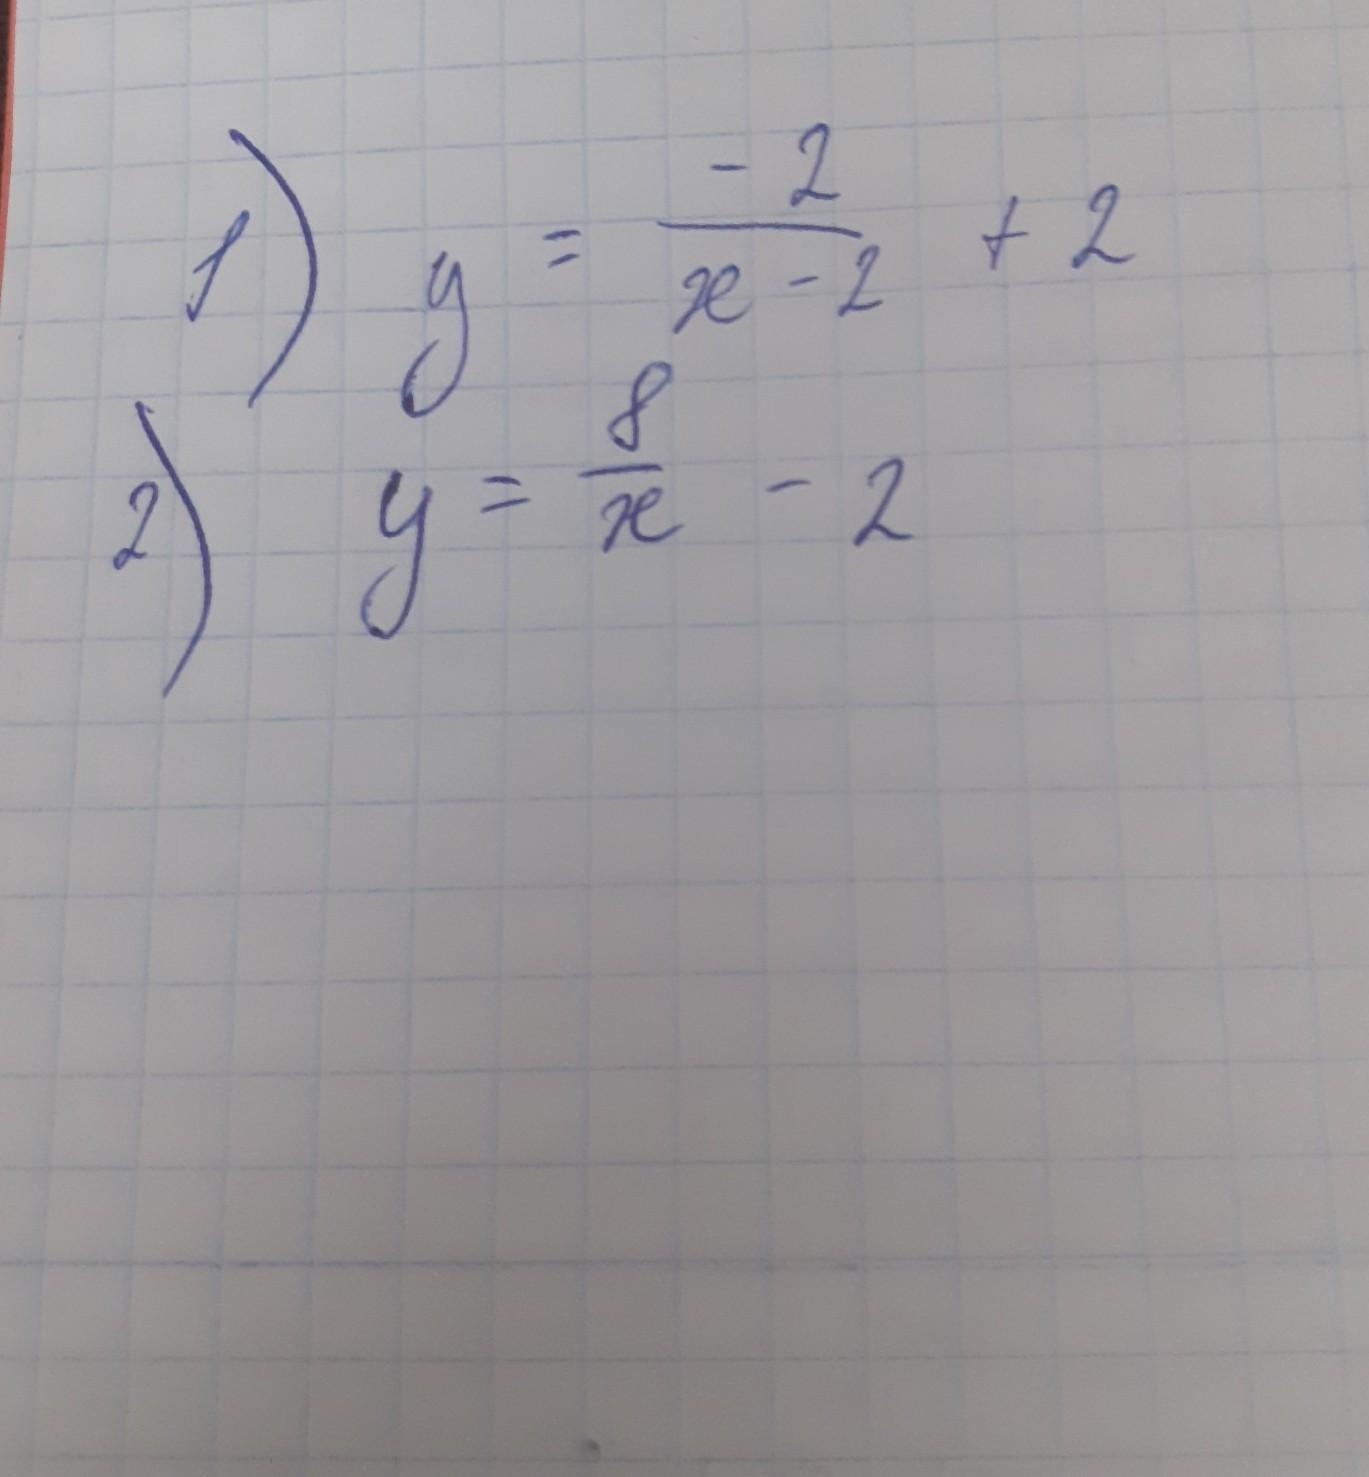 1) y = -2/(x-2) + 2
2) y = 8/x - 2